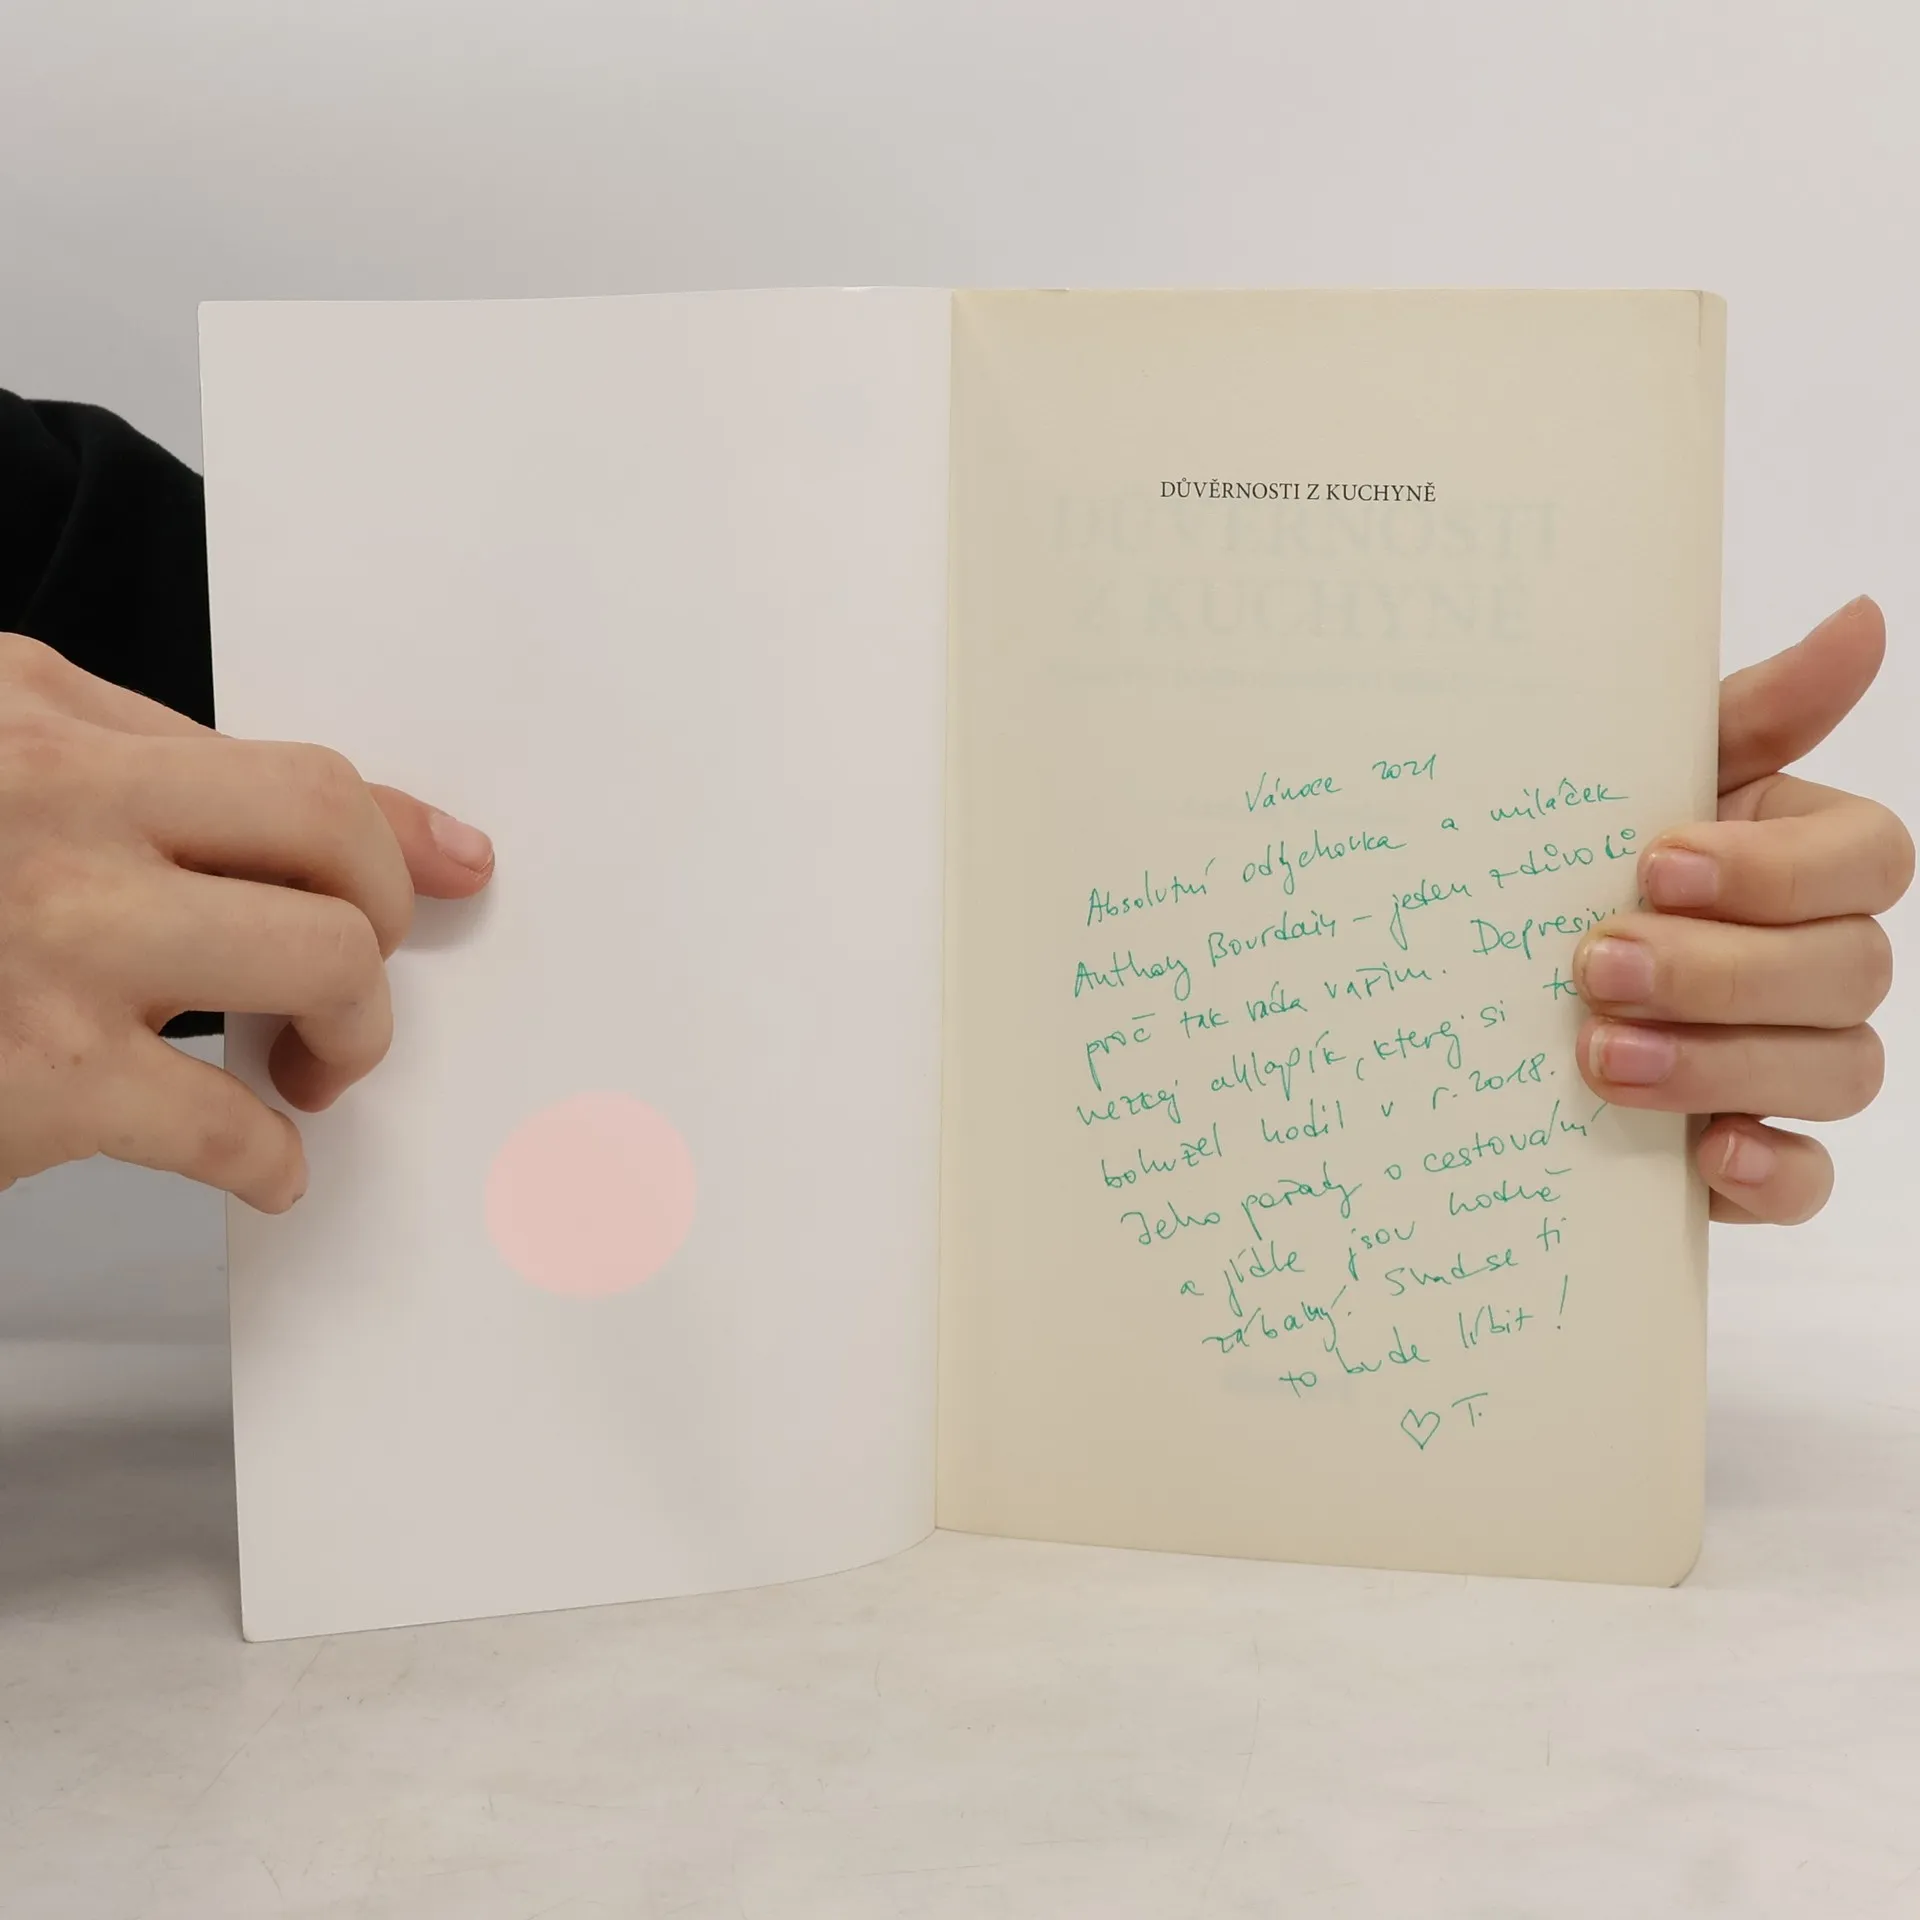 DŮVĚRNOSTI Z KUCHYNĚ
DŮVĚRNOSTI
Z KUCHYNĚ
Vánoce 2021
Absolutní oddychovka a miláček
Anthony Bourdain – jeden z důvodů
proč tak ráda vařím.
chlapík, kterej si to
bohužel hodil v r. 2018.
Jeho pořady o cestování
a jídle jsou hodně
zábavný. Snad se ti
to bude líbit!
♡ T.